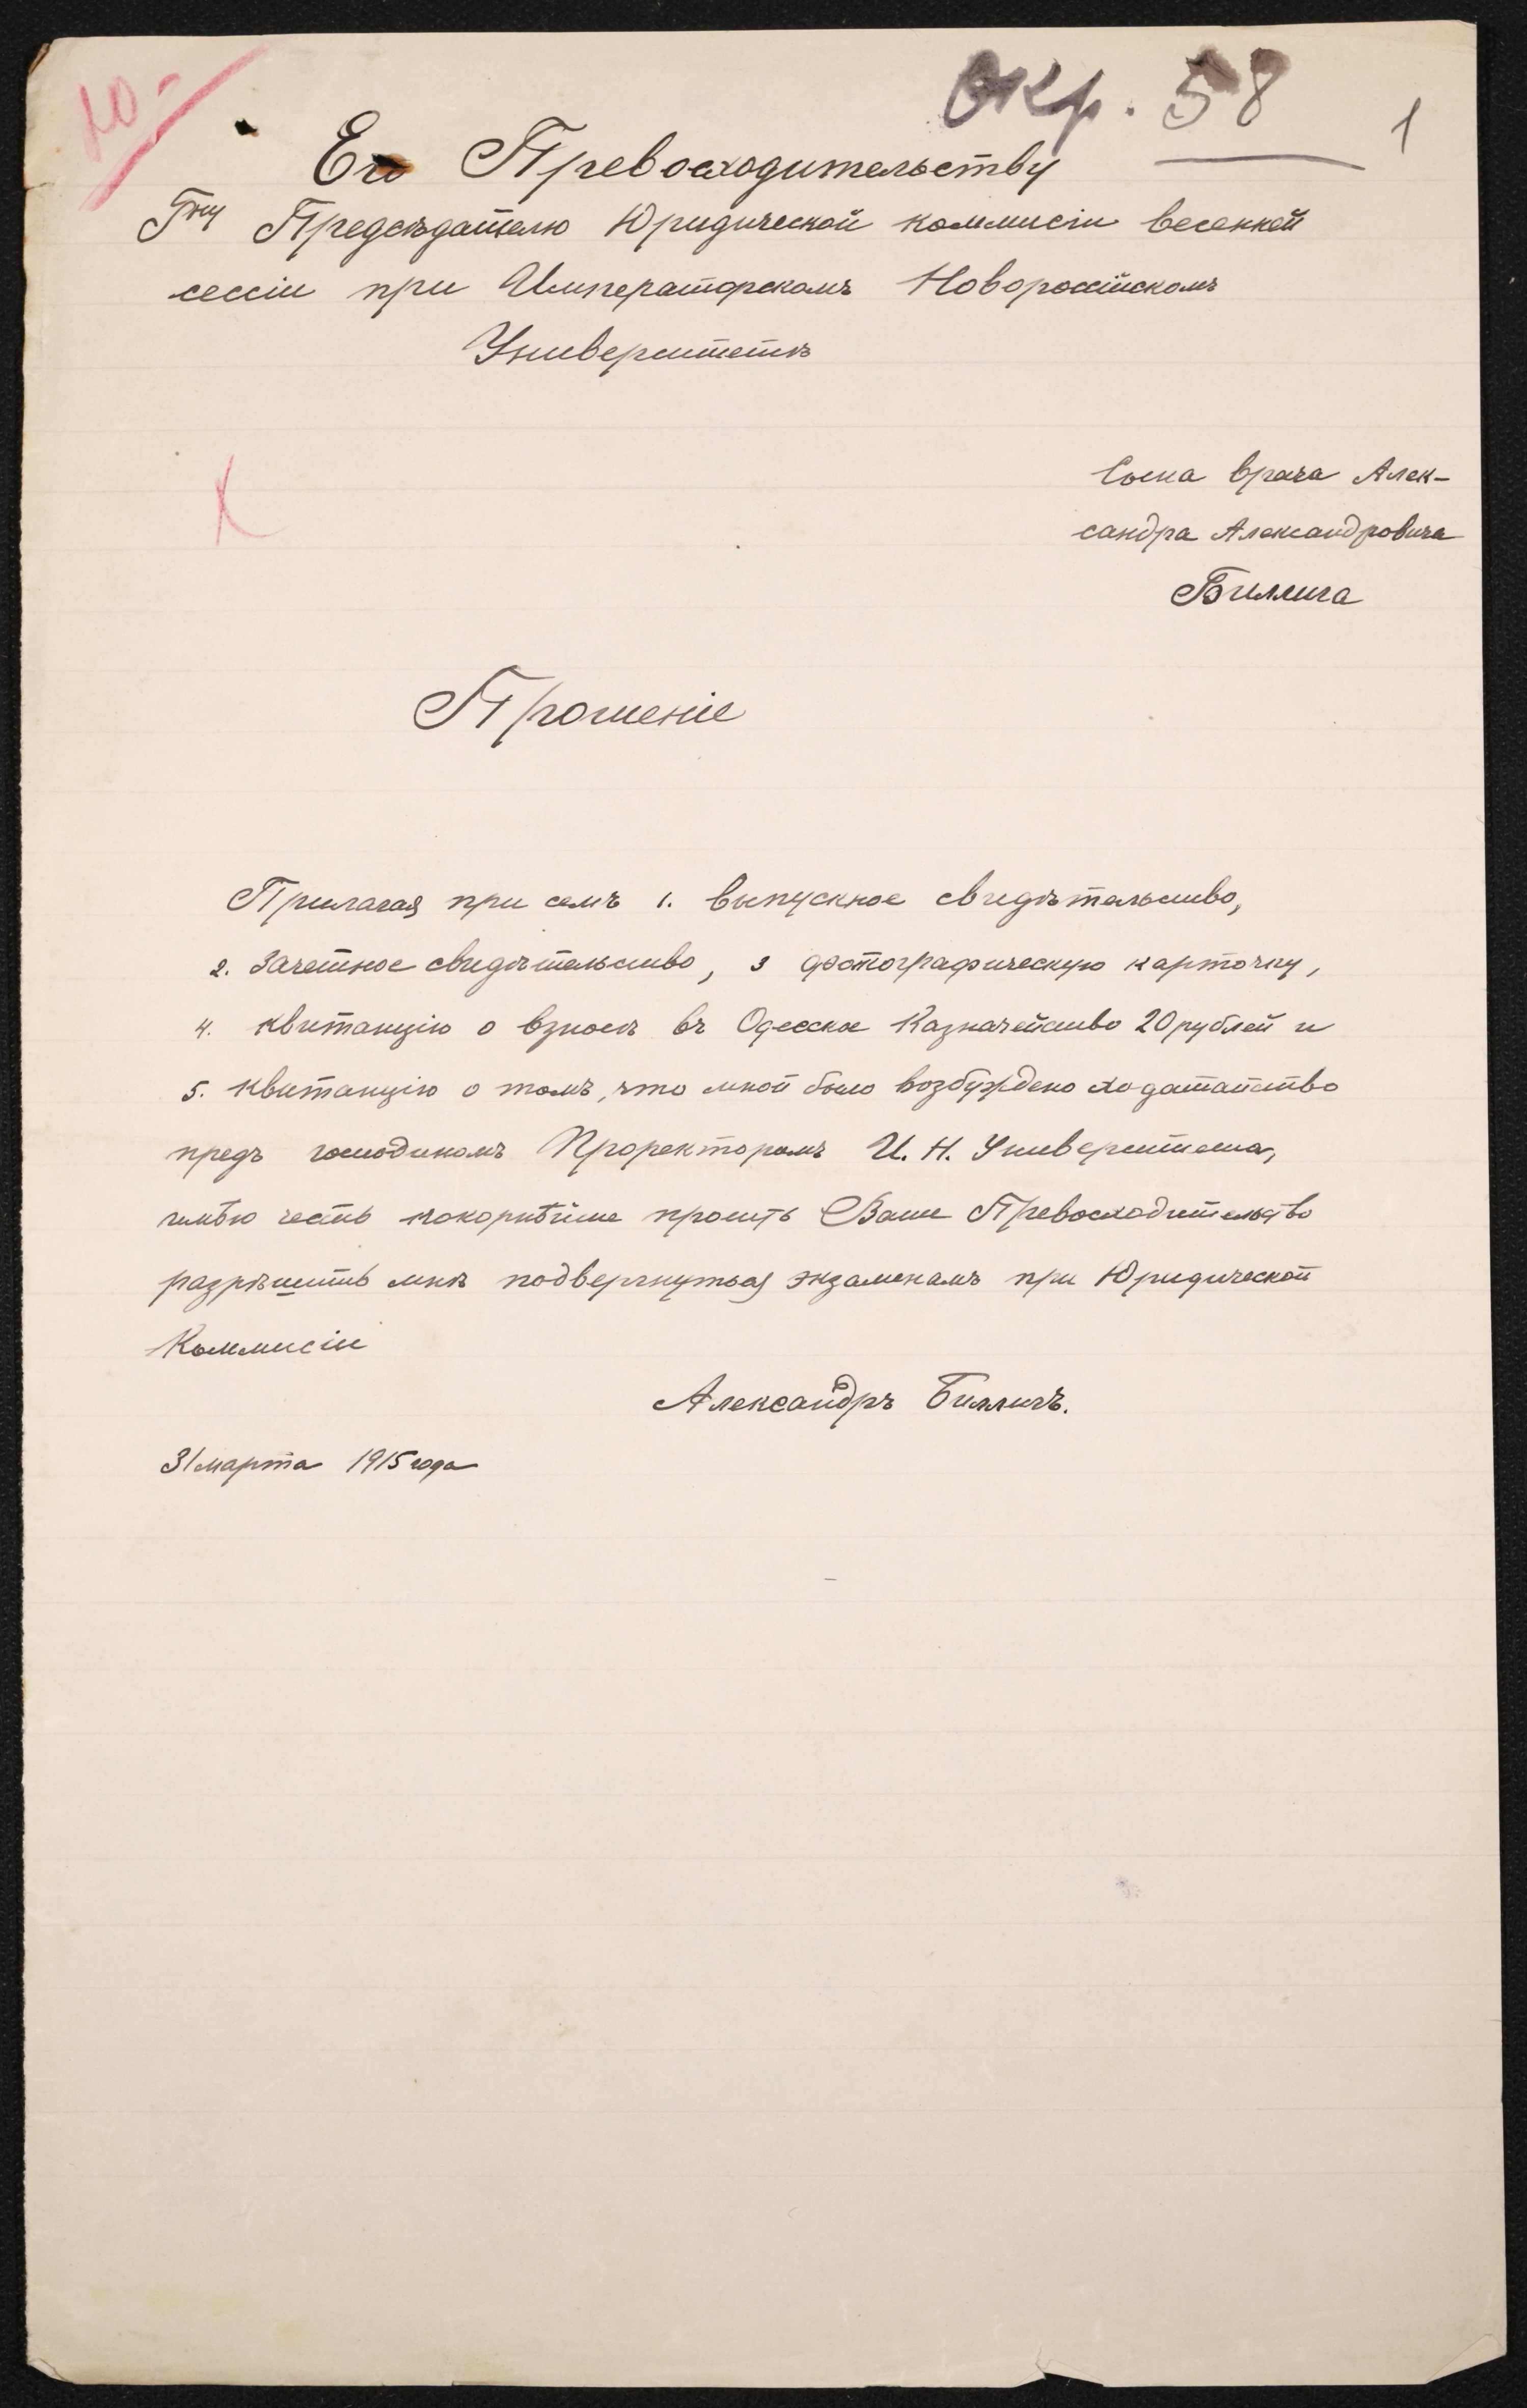 10-
Окр. 58
1
Его Превосходительству
Гну Предсѣдателю Юридической коммисіи весенней
сессіи при Императорскомъ Новороссійскомъ
Университетѣ
Сына врача Алек-
сандра Александровича
Биллига
Прошеніе
Прилагая при семъ 1. выпускное свидѣтельство,
2. Зачетное свидѣтельство, 3 фотографическую карточку,
4. квитанцію о взносѣ въ Одесское Казначейство 20 рублей и
5. квитанцію о томъ, что мной было возбуждено ходатайство
предъ господиномъ Проректоромъ И. Н. Университета,
имѣю честь покорнѣйше просить Ваше Превосходительство
разрѣшить мнѣ подвергнуться экзаменамъ при Юридической
Коммисіи
Александръ Биллигъ.
31 марта 1915 года